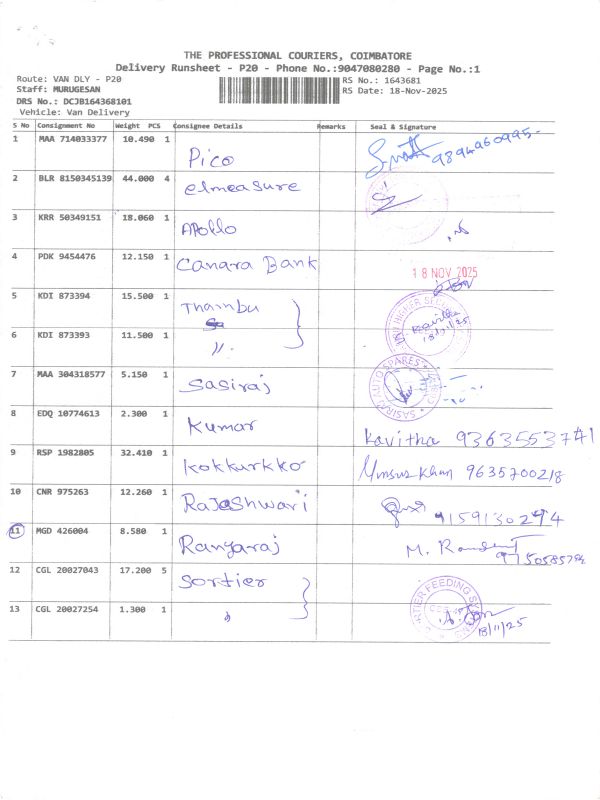 THE PROFESSIONAL COURIERS, COIMBATORE
Delivery Runsheet - P20 - Phone No.:9047080280 - Page No.:1
Route: VAN DLY - P20 RS No.: 1643681
Staff: MURUGESAN RS Date: 18-Nov-2025
DRS No.: DCJB164368101
Vehicle: Van Delivery
S No Consignment No Weight PCS Consignee Details Remarks Seal & Signature
1 MAA 714033377 10.490 1 Pico 9894960995
2 BLR 8150345139 44.000 4 elmeasure
3 KRR 50349151 18.060 1 Apollo
4 PDK 9454476 12.150 1 Canara Bank 18 NOV 2025
5 KDI 873394 15.500 1 Thambu Kavitha 18/11/25
6 KDI 873393 11.500 1 〃
7 MAA 304318577 5.150 1 Sasiraj SASIRAJ AUTO SPARES
8 EDQ 10774613 2.300 1 Kumar Kavitha 9363553741
9 RSP 1982805 32.410 1 Kokkurkko 9635700218
10 CNR 975263 12.260 1 Rajeshwari 9159130294
11 MGD 426004 8.580 1 Rangaraj M. 9750585794
12 CGL 20027043 17.200 5 Sortier
13 CGL 20027254 1.300 1 〃 18/11/25